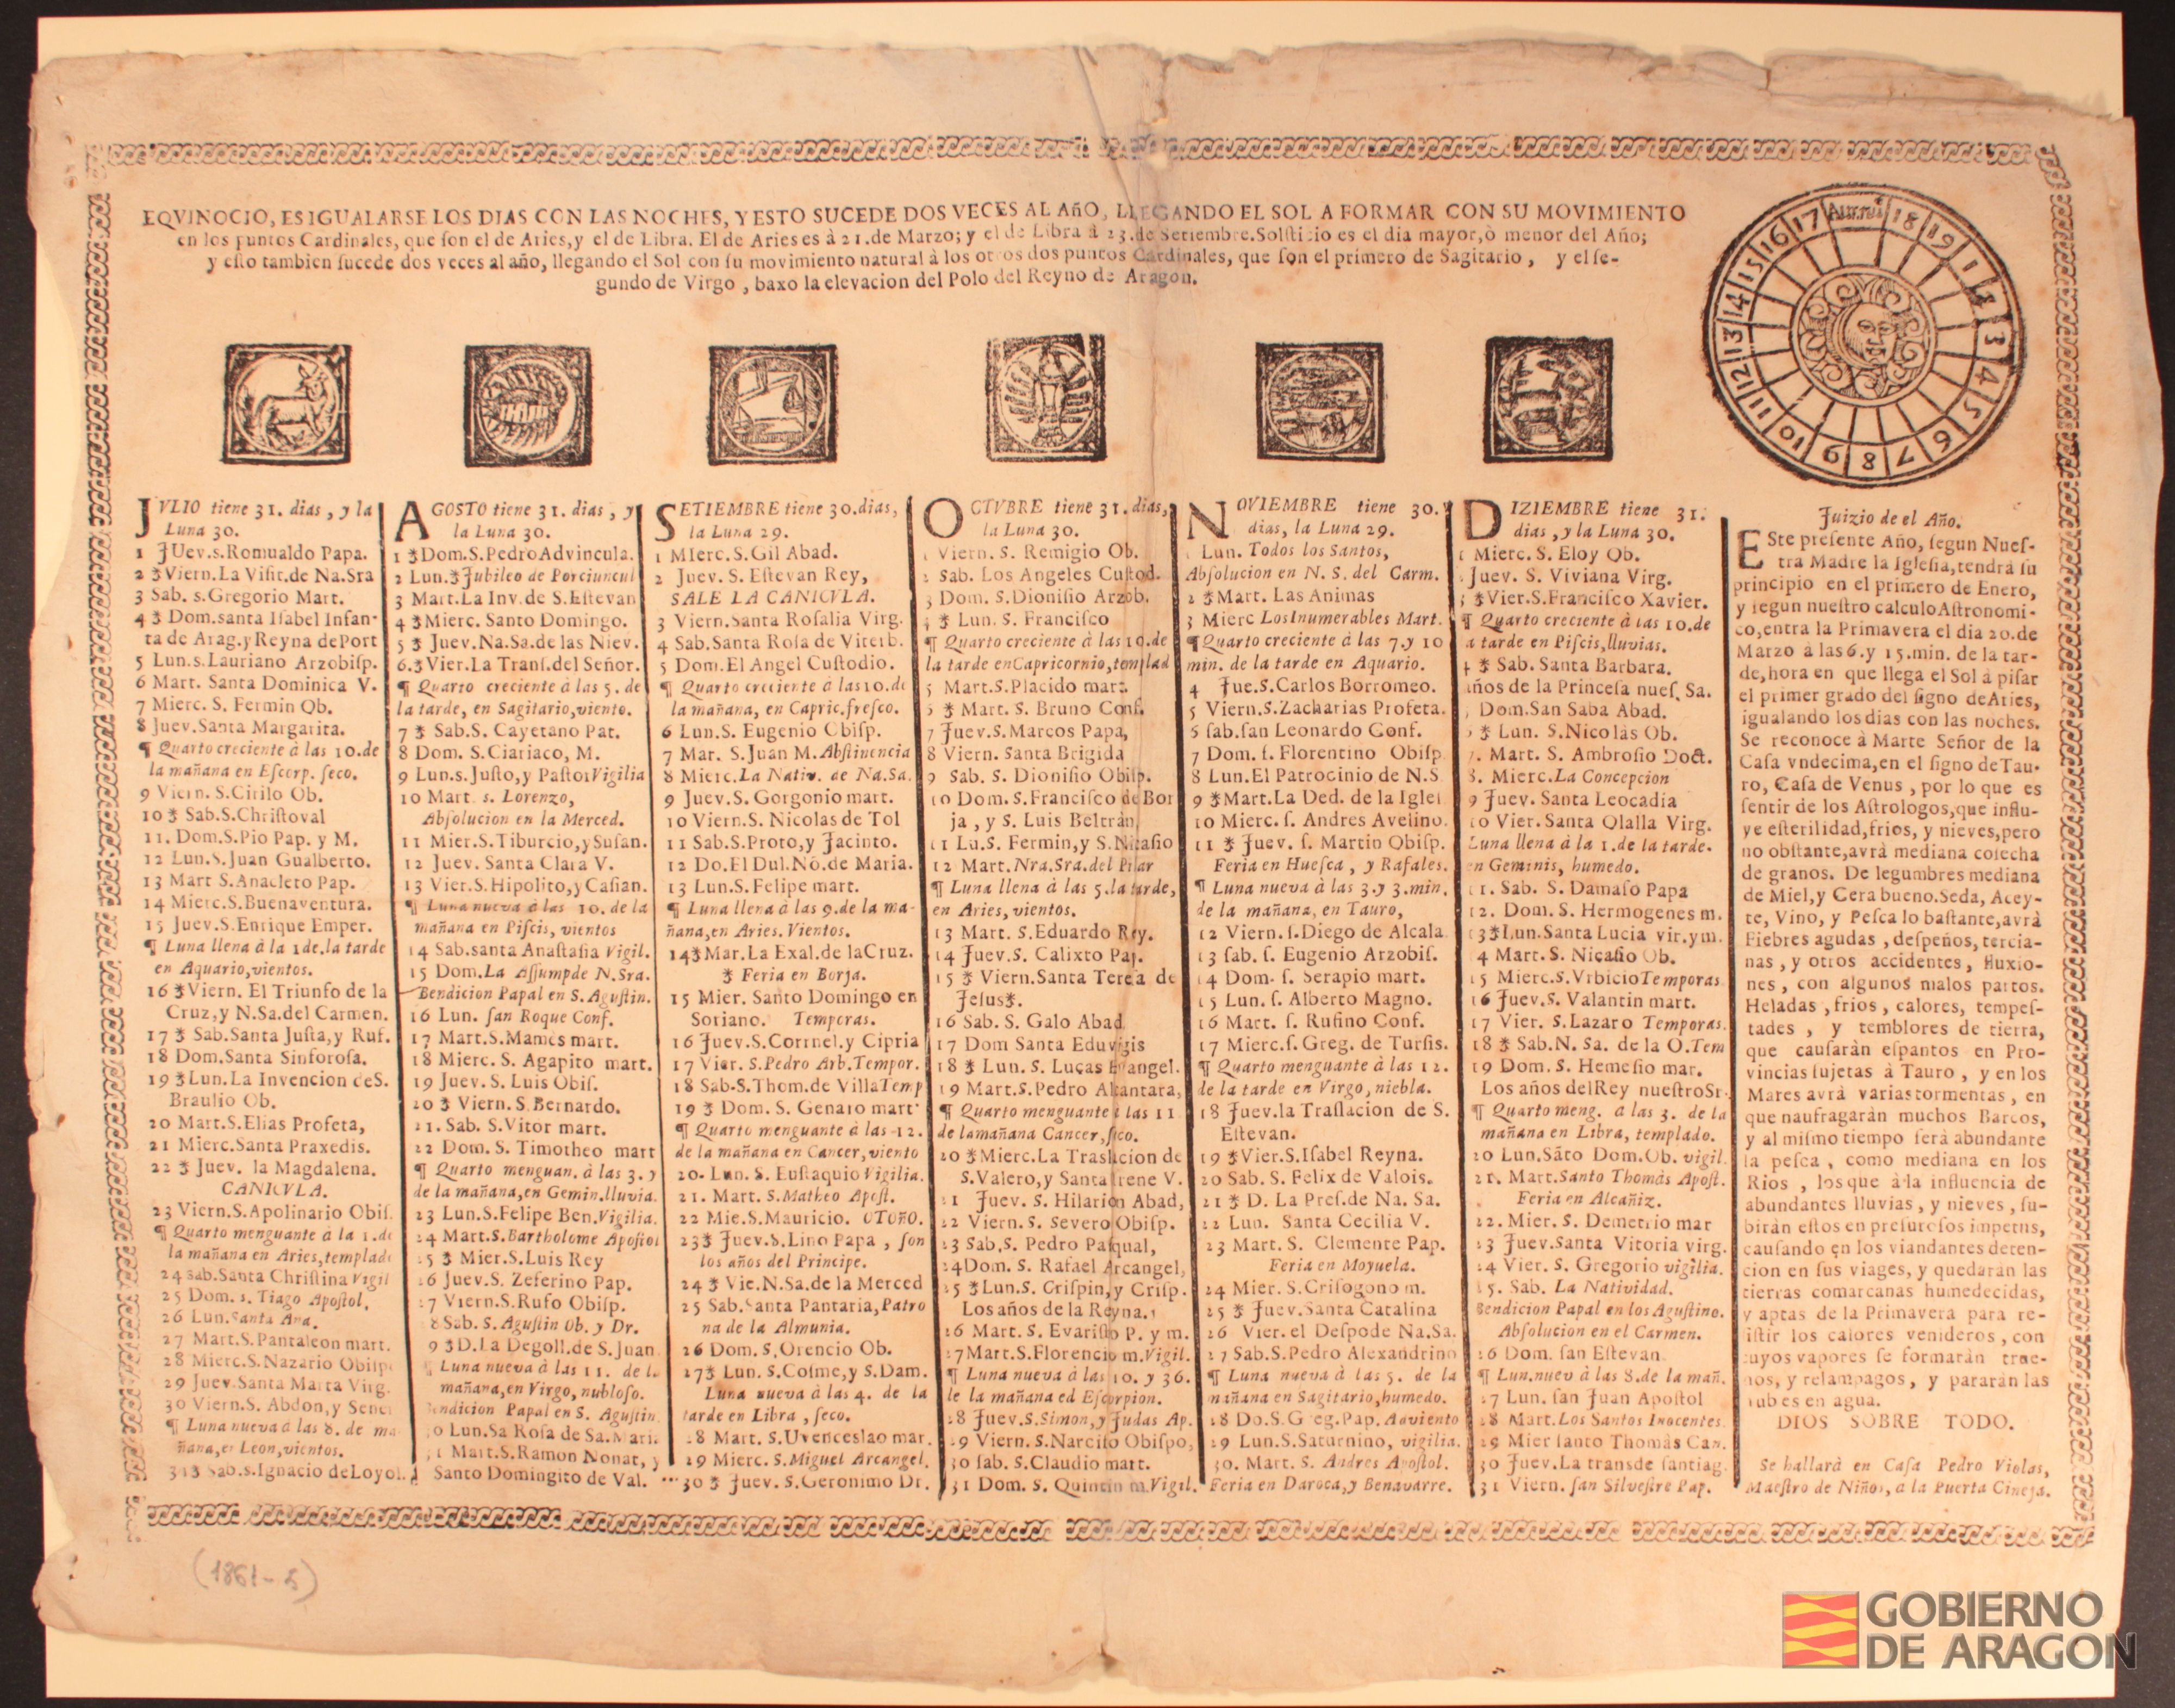 EQVINOCIO, ES IGUALARSE LOS DIAS CON LAS NOCHES, Y ESTO SUCEDE DOS VECES AL AñO, LLEGANDO EL SOL A FORMAR CON SU MOVIMIENTO
en los puntos Cardinales, que ſon el de Aries, y el de Libra. El de Aries es à 21. de Marzo; y el de Libra à 23. de Setiembre. Solſticio es el dia mayor, ò menor del Año;
y eſto tambien ſucede dos veces al año, llegando el Sol con ſu movimiento natural à los otros dos puntos Cardinales, que ſon el primero de Sagitario, y el ſe-
gundo de Virgo, baxo la elevacion del Polo del Reyno de Aragon.
17 18 19 1 2 3 4 5 6 7 8 9 10 11 12 13 14 15 16
JVLIO tiene 31. dias, y la
Luna 30.
1 JUev. s. Romualdo Papa.
2 ⁂ Viern. La Viſit. de Na. Sra
3 Sab. s. Gregorio Mart.
4 ⁂ Dom. santa Iſabel Infan-
ta de Arag. y Reyna de Port
5 Lun. s. Lauriano Arzobiſp.
6 Mart. Santa Dominica V.
7 Mierc. S. Fermin Ob.
8 Juev. Santa Margarita.
¶ Quarto creciente à las 10. de
la mañana en Eſcorp. ſeco.
9 Viern. S. Cirilo Ob.
10 ⁂ Sab. S. Chriſtoval
11. Dom. S. Pio Pap. y M.
12 Lun. S. Juan Gualberto.
13 Mart S. Anacleto Pap.
14 Mierc. S. Buenaventura.
15 Juev. S. Enrique Emper.
¶ Luna llena à la 1 de. la tarde
en Aquario, vientos.
16 ⁂ Viern. El Triunfo de la
Cruz, y N. Sa. del Carmen.
17 ⁂ Sab. Santa Juſta, y Ruf.
18 Dom. Santa Sinforoſa.
19 ⁂ Lun. La Invencion de S.
Braulio Ob.
20 Mart. S. Elias Profeta,
21 Mierc. Santa Praxedis.
22 ⁂ Juev. la Magdalena.
CANICVLA.
23 Viern. S. Apolinario Obiſ.
¶ Quarto menguante à la 1. de
la mañana en Aries, templado
24 Sab. Santa Chriſtina Vigil
25 Dom. s. Tiago Apoſtol,
26 Lun. Santa Ana.
27 Mart. S. Pantaleon mart.
28 Mierc. S. Nazario Obiſp
29 Juev. Santa Marta Virg.
30 Viern. S. Abdon, y Senen
¶ Luna nueva à las 8. de ma
ñana, en Leon, vientos.
31 ⁂ Sab. s. Ignacio de Loyol.
AGOSTO tiene 31. dias, y
la Luna 30.
1 ⁂ Dom. S. Pedro Advincula.
2 Lun. ⁂ Jubileo de Porciuncul
3 Mart. La Inv. de S. Eſtevan
4 ⁂ Mierc. Santo Domingo.
5 ⁂ Juev. Na. Sa. de las Niev.
6. ⁂ Vier. La Tranſ. del Señor.
¶ Quarto creciente à las 5. de
la tarde, en Sagitario, viento.
7 ⁂ Sab. S. Cayetano Pat.
8 Dom. S. Ciariaco, M.
9 Lun. s. Juſto, y Paſtor Vigilia
10 Mart. s. Lorenzo,
Abſolucion en la Merced.
11 Mier. S. Tiburcio, y Suſan.
12 Juev. Santa Clara V.
13 Vier. S. Hipolito, y Caſian.
¶ Luna nueva à las 10. de la
mañana en Piſcis, vientos
14 Sab. santa Anaſtaſia Vigil.
15 Dom. La Aſſump de N. Sra.
Bendicion Papal en S. Aguſtin.
16 Lun. ſan Roque Conf.
17 Mart. S. Mames mart.
18 Mierc. S. Agapito mart.
19 Juev. S. Luis Obiſ.
20 ⁂ Viern. S. Bernardo.
21. Sab. S. Vitor mart.
22 Dom. S. Timotheo mart
¶ Quarto menguan. à las 3. y
de la mañana, en Gemin. lluvia.
23 Lun. S. Felipe Ben. Vigilia.
24 Mart. S. Bartholome Apoſtol
25 ⁂ Mier. S. Luis Rey
26 Juev. S. Zeferino Pap.
27 Viern. S. Rufo Obiſp.
28 Sab. S. Aguſtin Ob. y Dr.
29 ⁂ D. La Degoll. de S. Juan
¶ Luna nueva à las 11. de la
mañana, en Virgo, nubloſo.
Bendicion Papal en S. Aguſtin
30 Lun. Sa Roſa de Sa. Mari.
31 Mart. S. Ramon Nonat, y
Santo Domingito de Val.
SETIEMBRE tiene 30. dias,
la Luna 29.
1 MIerc. S. Gil Abad.
2 Juev. S. Eſtevan Rey,
SALE LA CANICVLA.
3 Viern. Santa Roſalia Virg.
4 Sab. Santa Roſa de Viterb.
5 Dom. El Angel Cuſtodio.
¶ Quarto creciente à las 10. de
la mañana, en Capric. freſco.
6 Lun. S. Eugenio Obiſp.
7 Mar. S. Juan M. Abſtinencia
8 Mierc. La Nativ. de Na. Sa.
9 Juev. S. Gorgonio mart.
10 Viern. S. Nicolas de Tol
11 Sab. S. Proto, y Jacinto.
12 Do. El Dul. Nō. de Maria.
13 Lun. S. Felipe mart.
¶ Luna llena à las 9. de la ma-
ñana, en Aries. Vientos.
14 ⁂ Mar. La Exal. de la Cruz.
⁂ Feria en Borja.
15 Mier. Santo Domingo en
Soriano. Temporas.
16 Juev. S. Cornel. y Cipria
17 Vier. S. Pedro Arb. Tempor.
18 Sab. S. Thom. de Villa Temp
19 ⁂ Dom. S. Genaro mart
¶ Quarto menguante à las 12.
de la mañana en Cancer, viento
20. Lun. S. Euſtaquio Vigilia.
21. Mart. S. Matheo Apoſt.
22 Mie. S. Mauricio. OTOñO.
23 ⁂ Juev. S. Lino Papa, ſon
los años del Principe.
24 ⁂ Vie. N. Sa. de la Merced
25 Sab. Santa Pantaria, Patro
na de la Almunia.
26 Dom. S. Orencio Ob.
27 ⁂ Lun. S. Coſme, y S. Dam.
Luna nueva à las 4. de la
tarde en Libra, ſeco.
28 Mart. S. Uvenceslao mar.
29 Mierc. S. Miguel Arcangel.
30 ⁂ Juev. S. Geronimo Dr.
OCTVBRE tiene 31. dias,
la Luna 30.
1 Viern. S. Remigio Ob.
2 Sab. Los Angeles Cuſtod.
3 Dom. S. Dioniſio Arzob.
4 ⁂ Lun. S. Franciſco
¶ Quarto creciente à las 10. de
la tarde en Capricornio, templad
5 Mart. S. Placido mart.
6 ⁂ Mart. S. Bruno Conf.
7 Juev. S. Marcos Papa,
8 Viern. Santa Brigida
9 Sab. S. Dioniſio Obiſp.
10 Dom. S. Franciſco de Bor
ja, y S. Luis Beltràn
11 Lu. S. Fermin, y S. Nicaſio
12 Mart. Nra. Sra. del Pilar
¶ Luna llena à las 5. la tarde,
en Aries, vientos.
13 Mart. S. Eduardo Rey.
14 Juev. S. Calixto Pap.
15 ⁂ Viern. Santa Tereſa de
Jeſus ⁂.
16 Sab. S. Galo Abad
17 Dom Santa Eduvigis
18 ⁂ Lun. S. Lucas Evangel.
19 Mart. S. Pedro Alcantara,
¶ Quarto menguante à las 11
de la mañana Cancer, ſeco.
20 ⁂ Mierc. La Traslacion de
S. Valero, y Santa Irene V.
21 Juev. S. Hilarion Abad,
22 Viern. S. Severo Obiſp.
23 Sab. S. Pedro Paſqual,
24 Dom. S. Rafael Arcangel,
25 ⁂ Lun. S. Criſpin, y Criſp.
Los años de la Reyna.
26 Mart. S. Evariſto P. y m.
27 Mart. S. Florencio m. Vigil.
¶ Luna nueva à las 10. y 36.
de la mañana ed Eſcorpion.
28 Juev. S. Simon, y Judas Ap.
29 Viern. S. Narciſo Obiſpo,
30 ſab. S. Claudio mart.
31 Dom. S. Quintin m. Vigil.
NOVIEMBRE tiene 30.
dias, la Luna 29.
1 Lun. Todos los Santos,
Abſolucion en N. S. del Carm.
2 ⁂ Mart. Las Animas
3 Mierc Los Inumerables Mart.
¶ Quarto creciente à las 7. y 10
min. de la tarde en Aquario.
4 Jue. S. Carlos Borromeo.
5 Viern. S. Zacharias Profeta.
5 ſab. ſan Leonardo Conf.
7 Dom. ſ. Florentino Obiſp
8 Lun. El Patrocinio de N. S
9 ⁂ Mart. La Ded. de la Igleſ
10 Mierc. ſ. Andres Avelino.
11 ⁂ Juev. ſ. Martin Obiſp.
Feria en Hueſca, y Rafales.
¶ Luna nueva à las 3. y 3. min.
de la mañana, en Tauro,
12 Viern. ſ. Diego de Alcala
13 ſab. ſ. Eugenio Arzobiſ.
14 Dom. ſ. Serapio mart.
15 Lun. ſ. Alberto Magno.
16 Mart. ſ. Rufino Conf.
17 Mierc. ſ. Greg. de Turſis.
¶ Quarto menguante à las 12.
de la tarde en Virgo, niebla.
18 Juev. la Traſlacion de S.
Eſtevan.
19 ⁂ Vier. S. Iſabel Reyna.
20 Sab. S. Felix de Valois.
21 ⁂ D. La Preſ. de Na. Sa.
22 Lun. Santa Cecilia V.
23 Mart. S. Clemente Pap.
Feria en Moyuela.
24 Mier. S. Criſogono m.
25 ⁂ Juev. Santa Catalina
26 Vier. el Deſpode Na. Sa.
27 Sab. S. Pedro Alexandrino
¶ Luna nueva à las 5. de la
mañana en Sagitario, humedo.
28 Do. S. Greg. Pap. Adviento
29 Lun. S. Saturnino, vigilia.
30. Mart. S. Andres Apoſtol.
Feria en Daroca, y Benavarre.
DIZIEMBRE tiene 31.
dias, y la Luna 30.
1 Mierc. S. Eloy Ob.
2 Juev. S. Viviana Virg.
3 ⁂ Vier. S. Franciſco Xavier.
¶ Quarto creciente à las 10. de
a tarde en Piſcis, lluvias.
4 ⁂ Sab. Santa Barbara.
años de la Princeſa nueſ. Sa.
5 Dom. San Saba Abad.
6 ⁂ Lun. S. Nicolàs Ob.
7. Mart. S. Ambroſio Doct.
8. Mierc. La Concepcion
9 Juev. Santa Leocadia
10 Vier. Santa Olalla Virg.
Luna llena à la 1. de la tarde.
en Geminis, humedo.
11. Sab. S. Damaſo Papa
12. Dom. S. Hermogenes m.
13 ⁂ Lun. Santa Lucia vir. y m.
14 Mart. S. Nicaſio Ob.
15 Mierc. S. Vrbicio Temporas
16 Juev. S. Valantin mart.
17 Vier. S. Lazaro Temporas.
18 ⁂ Sab. N. Sa. de la O. Tem
19 Dom. S. Hemeſio mar.
Los años del Rey nueſtro Sr.
¶ Quarto meng. à las 3. de la
mañana en Libra, templado.
20 Lun. Sāto Dom. Ob. vigil.
21. Mart. Santo Thomàs Apoſt.
Feria en Alcañiz.
22. Mier. S. Demetrio mar
23 Juev. Santa Vitoria virg.
24 Vier. S. Gregorio vigilia.
25. Sab. La Natividad.
Bendicion Papal en los Aguſtino.
Abſolucion en el Carmen.
26 Dom. ſan Eſtevan
¶ Lun. nuev à las 8. de la mañ.
27 Lun. ſan Juan Apoſtol
28 Mart. Los Santos Inocentes
29 Mier ſanto Thomàs Can.
30 Juev. La transde ſantiag.
31 Viern. ſan Silveſtre Pap.
Juizio de el Año.
ESte preſente Año, ſegun Nueſ-
tra Madre la Igleſia, tendrà ſu
principio en el primero de Enero,
y ſegun nueſtro calculo Aſtronomi-
co, entra la Primavera el dia 20. de
Marzo à las 6. y 15. min. de la tar-
de, hora en que llega el Sol à piſar
el primer grado del ſigno de Aries,
igualando los dias con las noches.
Se reconoce à Marte Señor de la
Caſa vndecima, en el ſigno de Tau-
ro, Caſa de Venus, por lo que es
ſentir de los Aſtrologos, que influ-
ye eſterilidad, frios, y nieves, pero
no obſtante, avrà mediana coſecha
de granos. De legumbres mediana
de Miel, y Cera bueno. Seda, Acey-
te, Vino, y Peſca lo baſtante, avrà
Fiebres agudas, deſpeños, tercia-
nas, y otros accidentes, fluxio-
nes, con algunos malos partos.
Heladas, frios, calores, tempeſ-
tades, y temblores de tierra,
que cauſaràn eſpantos en Pro-
vincias ſujetas à Tauro, y en los
Mares avrà varias tormentas, en
que naufragaràn muchos Barcos,
y al miſmo tiempo ſerà abundante
la peſca, como mediana en los
Rios, los que à la influencia de
abundantes lluvias, y nieves, ſu-
biràn eſtos en preſuroſos impetus,
cauſando en los viandantes deten-
cion en ſus viages, y quedaràn las
tierras comarcanas humedecidas,
y aptas de la Primavera para re-
ſiſtir los calores venideros, con
cuyos vapores ſe formaràn true-
nos, y relampagos, y pararàn las
nubes en agua.
DIOS SOBRE TODO.
Se hallarà en Caſa Pedro Violas,
Maeſtro de Niños, a la Puerta Cineja.
(1861-5)
GOBIERNO
DE ARAGON